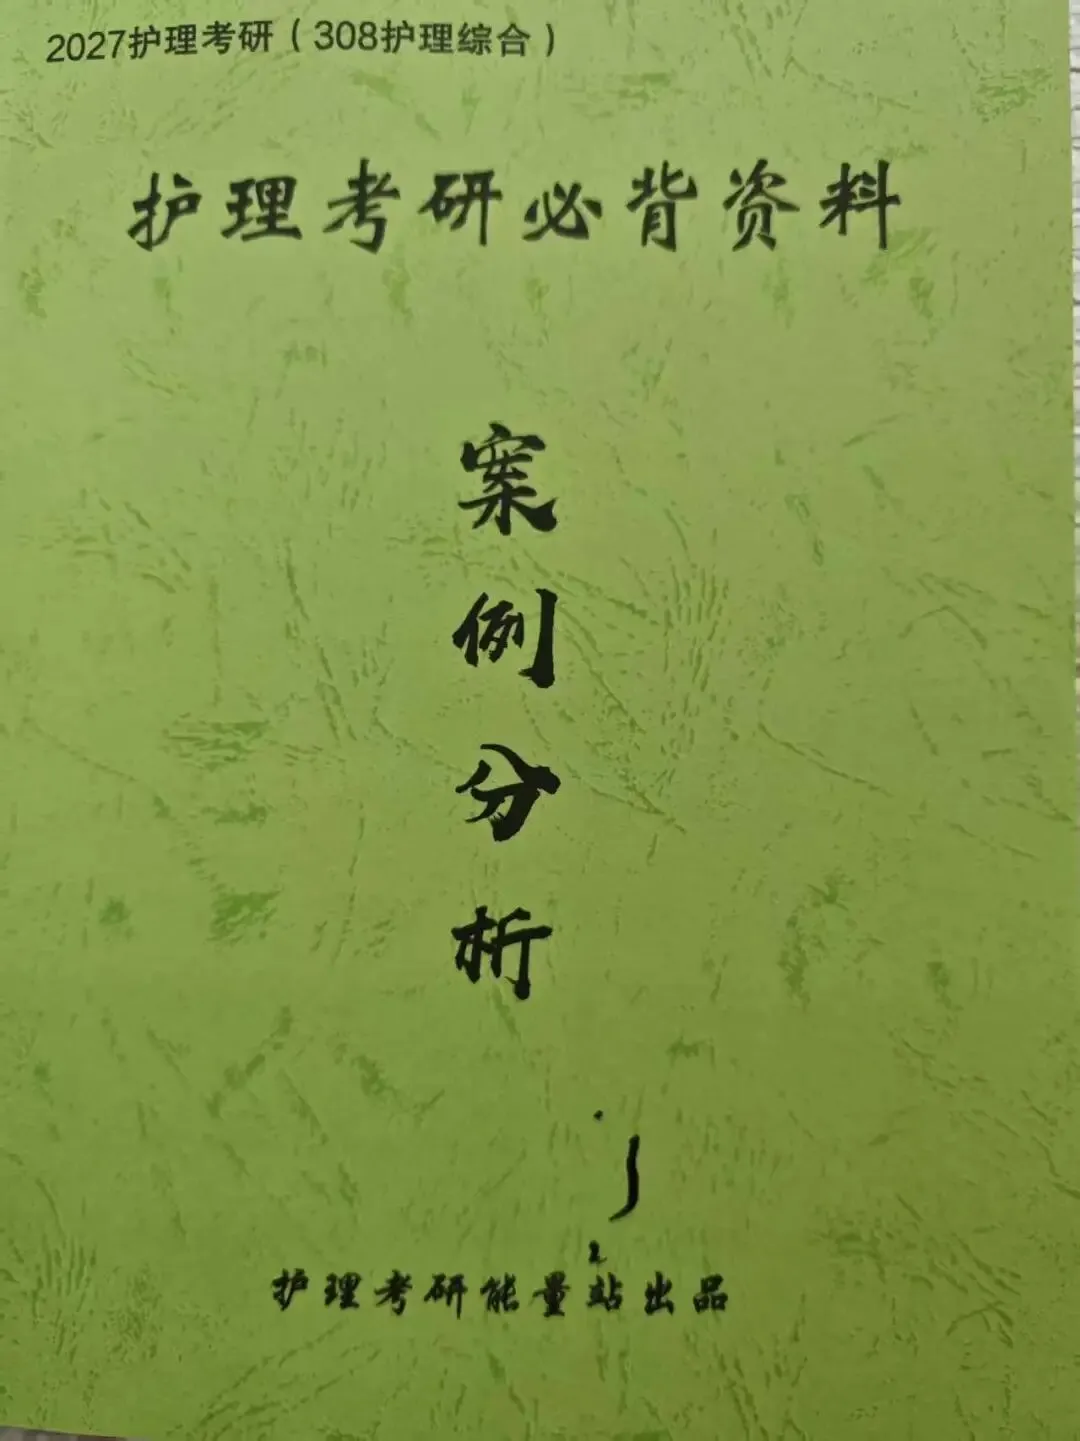 2027护理考研（308护理综合）
护理考研必背资料
案
例
分
析
护理考研能量站出品